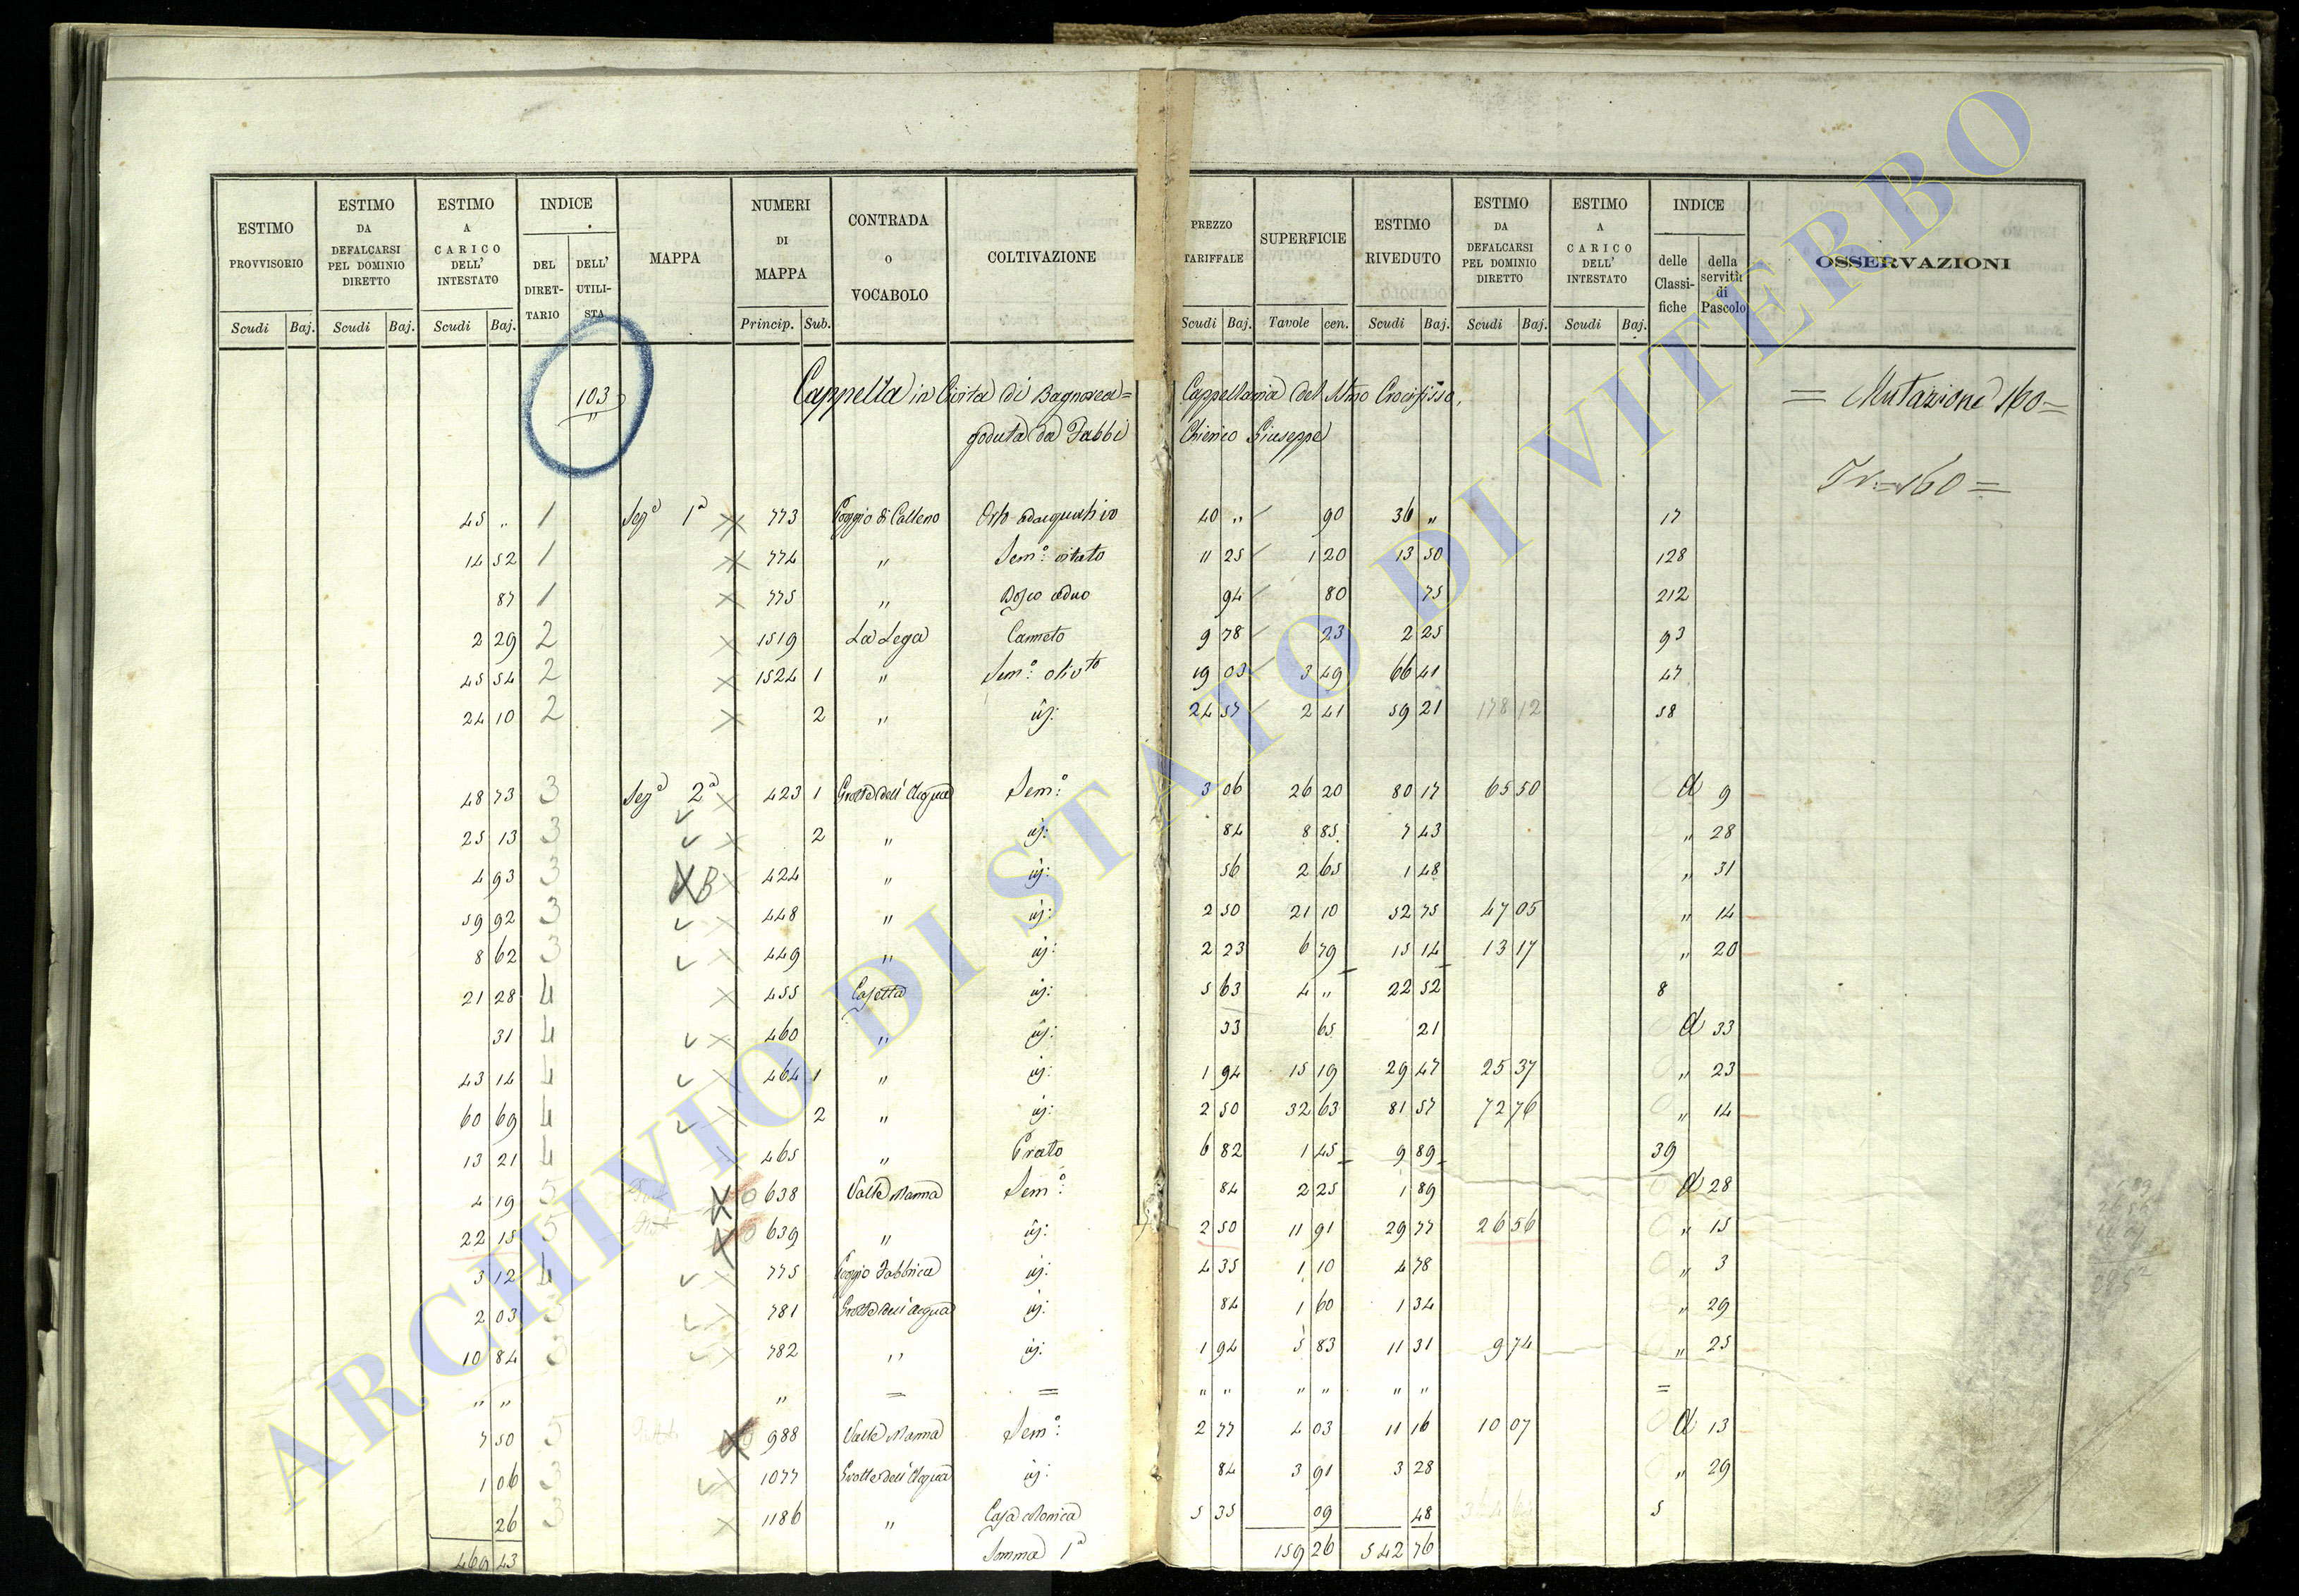 ESTIMO PROVVISORIO | ESTIMO DA DEFALCARSI PEL DOMINIO DIRETTO | ESTIMO A CARICO DELL' INTESTATO | INDICE | MAPPA | NUMERI DI MAPPA | CONTRADA O VOCABOLO | COLTIVAZIONE | PREZZO TARIFFALE | SUPERFICIE | ESTIMO RIVEDUTO | ESTIMO DA DEFALCARSI PEL DOMINIO DIRETTO | ESTIMO A CARICO DELL' INTESTATO | INDICE | OSSERVAZIONI
DEL DIRETTARIO | DELL' UTILISTA | delle Classifiche | della servitù di Pascolo
Scudi Baj. | Scudi Baj. | Scudi Baj. | Princip. Sub. | Scudi Baj. | Tavole cen. | Scudi Baj. | Scudi Baj. | Scudi Baj.
103 Cappella in Civita di Bagnorea = Cappellania del SSmo Crocifisso, = Mutazione 160 =
goduta da Fabbi Chierico Giuseppe
= 160 =
45 " 1 Segᵃ 1ᵃ 773 Poggio di Calleno Orto adacquativo 40 " 90 36 " 17
14 52 1 774 " Semᵒ: vitato 11 25 1 20 13 50 128
87 1 775 " Bosco ceduo 94 80 75 212
2 29 2 1519 La Lega Canneto 9 78 23 2 25 93
45 54 2 1524 1 " Semᵒ: olivᵗᵒ 19 03 3 49 66 41 47
24 10 2 2 " id: 24 57 2 41 59 21 178 12 58
48 73 3 Segᵃ 2ᵃ 423 1 Grotte dell'Acqua Semᵒ: 3 06 26 20 80 17 65 50 a 9
25 13 3 2 " id: 84 8 85 7 43 " 28
4 93 3 B 424 " id: 56 2 65 1 48 " 31
59 92 3 448 " id: 2 50 21 10 52 75 47 05 " 14
8 62 3 449 " id: 2 23 6 79 15 14 13 17 " 20
21 28 4 455 Casetta id: 5 63 4 " 22 52 8
31 4 460 " id: 33 65 21 a 33
43 14 4 464 1 " id: 1 94 15 19 29 47 25 37 " 23
60 69 4 2 " id: 2 50 32 63 81 57 72 76 " 14
13 21 4 465 " Prato 6 82 1 45 9 89 39
4 19 5 638 Valle Manna Semᵒ: 84 2 25 1 89 a 28
22 15 5 639 " id: 2 50 11 91 29 77 26 56 " 15
3 12 4 775 Poggio Fabbrica id: 4 35 1 10 4 78 " 3
2 03 3 781 Grotte dell'Acqua id: 84 1 60 1 34 " 29
10 84 3 782 " id: 1 94 5 83 11 31 9 74 " 25
" " " = = " " " " " " =
7 50 5 988 Valle Manna Semᵒ: 2 77 4 03 11 16 10 07 a 13
1 06 3 1077 Grotte dell'Acqua id: 84 3 91 3 28 " 29
26 3 1186 " Casa colonica 5 35 09 48 5
469 43 Somma 1ᵃ 159 26 542 76
ARCHIVIO DI STATO DI VITERBO